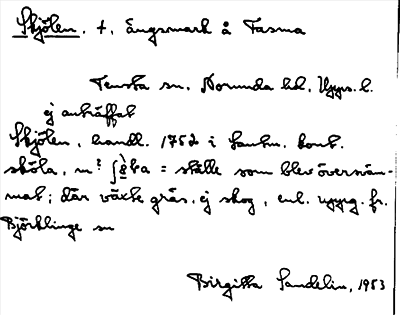 Skjölen, t. ängsmark å Fasma
Tensta sn. Norunda hd, Upps. l.
ej anträffat
Skjölen, handl. 1752 i Lantm. kont.
sköla, m? = ställe som blev översväm-
mat; där växte gräs, ej skog, enl. uppg. fr.
Björklinge sn
Birgitta Sandelin, 1953